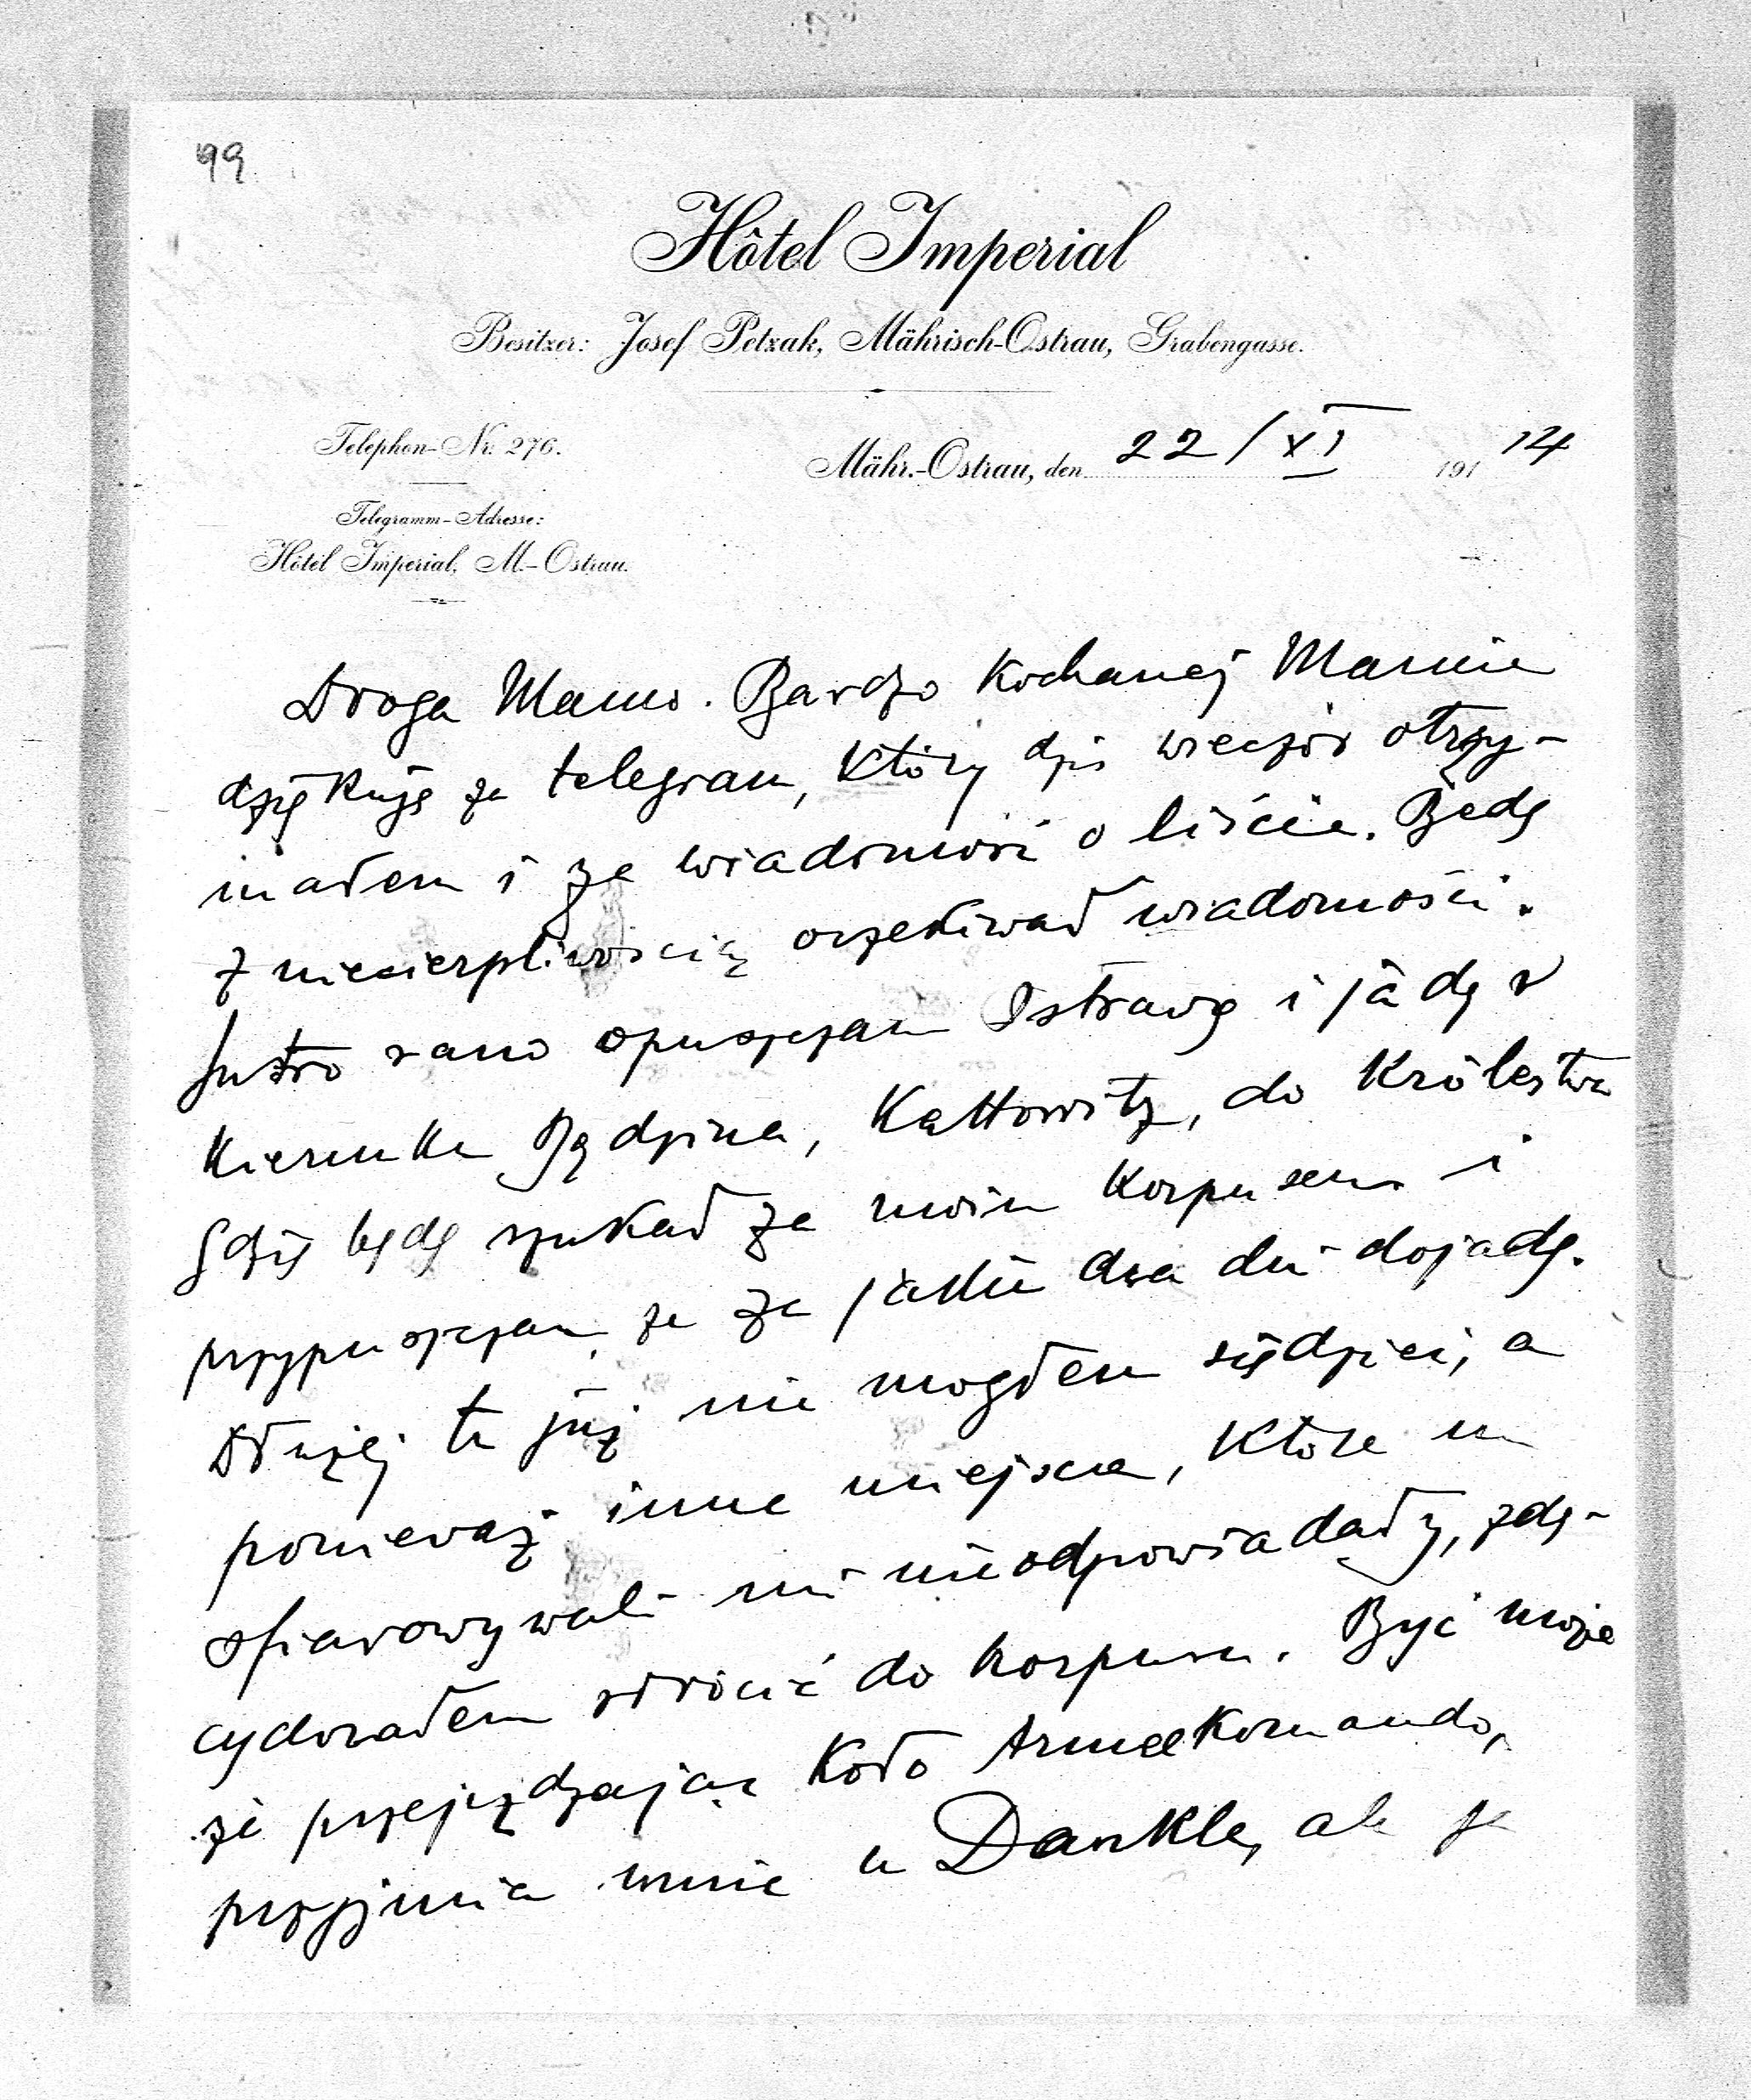 99
Hôtel Imperial
Besitzer: Josef Petzak, Mährisch-Ostrau, Grabengasse.
Telephon-Nr. 276.
Mähr.-Ostrau, den 22/XI 191 14
Telegramm-Adresse:
Hôtel Imperial, M.-Ostrau.
Droga Mamo. Bardzo kochanej Mamie
dziękuję za telegram, który dziś wieczór otrzy-
małem i za wiadomość o liście. Będę
z niecierpliwością oczekiwał wiadomości.
Jutro rano opuszczam Ostrawę i jadę w
kierunku Będzina, Kattowitz, do Królestwa
gdzie będę szukał za moim korpusem i
przypuszczam, że za jakie dwa dni dojadę.
Dłużej tu już nie mogłem siedzieć, a
ponieważ inne miejsca, które mi
ofiarowywali mi nie odpowiadały, zde-
cydowałem wrócić do korpusu. Być może
że przejeżdżając koło Armeekomando,
przyjmią mnie u Dankla, ale że